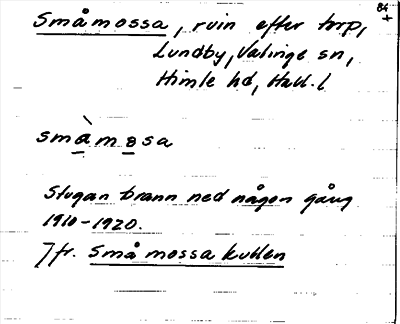 84
Småmossa, ruin efter torp,
Lundby, Valinge sn,
Himle hd, Hall. l
små̀mosa
Stugan brann ned någon gång
1910-1920.
Jfr. Små mossa kullen